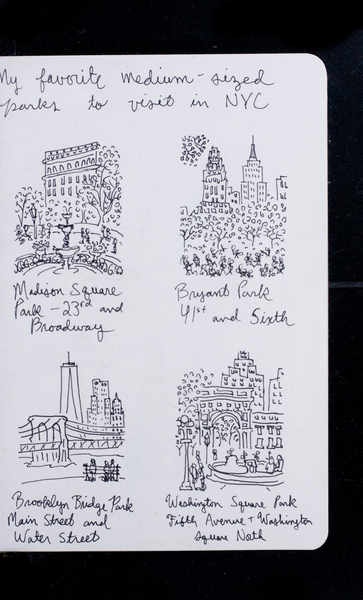 My favorite medium-sized
parks to visit in NYC
Madison Square
Park - 23rd and
Broadway
Bryant Park
41st and Sixth
Brooklyn Bridge Park
Main Street and
Water Street
Washington Square Park
Fifth Avenue + Washington
Square Noth